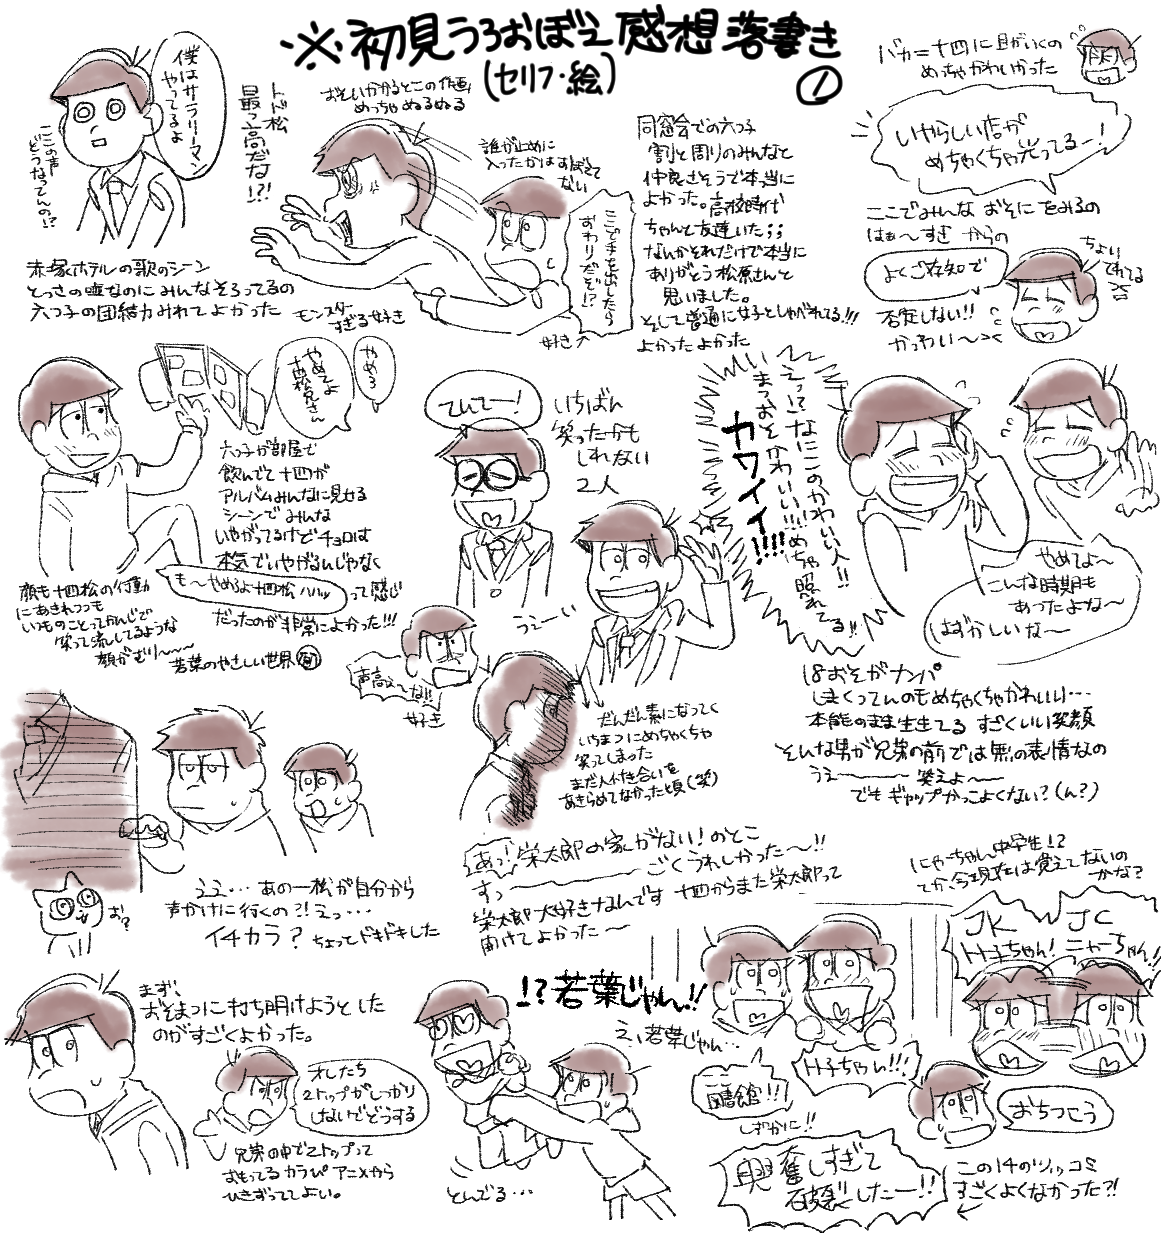 ※初見うろおぼえ感想落書き
(セリフ・絵)
①
僕はサラリーマン
やってるよ
ここの声
どうなってんの!?
赤塚ホテルの歌のシーン
とっさの嘘なのにみんなそろってるの
六つ子の団結力みれてよかった
トド松
最っ高だな!?!
おそいかかるとこの作画
めっちゃぬるぬる
誰が止めに
入ったかはすぼえて
ない
ここで手を出したら
おわりだぞ!?
モンスター
すぎる好き
好き
同窓会での六つ子
割と周りのみんなと
仲良さそうで本当に
よかった。高校時代
ちゃんと友達いた;;
なんかそれだけで本当に
ありがとう松原さんと
思いました。
そして普通に女子としゃべれてる!!!
よかったよかった
バカ=十四に目がいくの
めっちゃかわいかった
いやらしい店が
めちゃくちゃ光ってるー!
ここでみんなおそにをみるの
はぁ〜すき からの
よくご存知で
否定しない!!
かっわい〜
ちょい
てれてる
やめろ
やめてよ
十四松兄さん
六つ子が部屋で
飲んでて十四が
アルバムみんなに見せる
シーンでみんな
いやがってるけどチョロは
本気でいやがるんじゃなく
も〜やめろよ十四松ハハッ
って感じ
だったのが非常によかった!!!
顔も十四松の行動
にあきれつつも
いつものことってかんじで
笑って流してるような
顔がむり〜〜〜
若葉のやさしい世界
てんてー!
いちばん
笑ったかも
しれない
2人
うぇーい
声高え〜な!!
好き
だんだん素になってく
いちまつにめちゃくちゃ
笑ってしまった
まだ人付き合いを
あきらめてなかった頃(笑)
えってなにこのかわいい人!!
まっおそかわいい!!!めちゃ照れてる!!
カワイイ!!!!
やめてよ〜
こんな時期も
あったよな〜
はずかしいな〜
18おそがナンパ
しまくってんのもめちゃくちゃかわいい…
本能のまま生きてるすごくいい笑顔
そんな男が兄弟の前では無の表情なの
うぇ〜〜〜 笑えよ〜〜
でもギャップかっこよくない?(ん?)
お?
ええ…あの一松が自分から
声かけに行くの?!えっ…
イチカラ?ちょってドキドキした
あっ!栄太郎の家がない!のとこ
すっ〜〜〜ごくうれしかった〜!!
栄太郎大好きなんです十四からまた栄太郎って
聞けてよかった〜
にゃーちゃん中学生!?
てか今現在は覚えてないの
かな?
JK JC
トト子ちゃん!ニャーちゃん!!
まず、
おそまつに打ち明けようとした
のがすごくよかった。
オレたち
2トップがしっかり
しないでどうする
兄弟の中で2トップって
おもってるカラぴアニメから
ひきずっててよい。
!?若葉じゃん!!
え、若葉じゃん…
とんでる…
図書館!!!
しずかに!!
トト子ちゃん!!!
おちつこう
興奮しすぎて
破裂したー!!
この14のツッコミ
すごくよくなかった?!